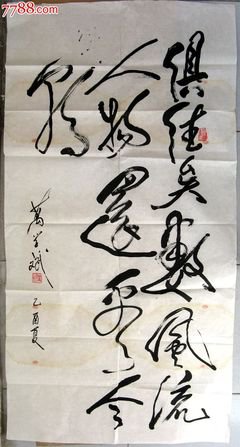 7788.com
俱往矣数风流
人物还看今
朝
乙酉夏